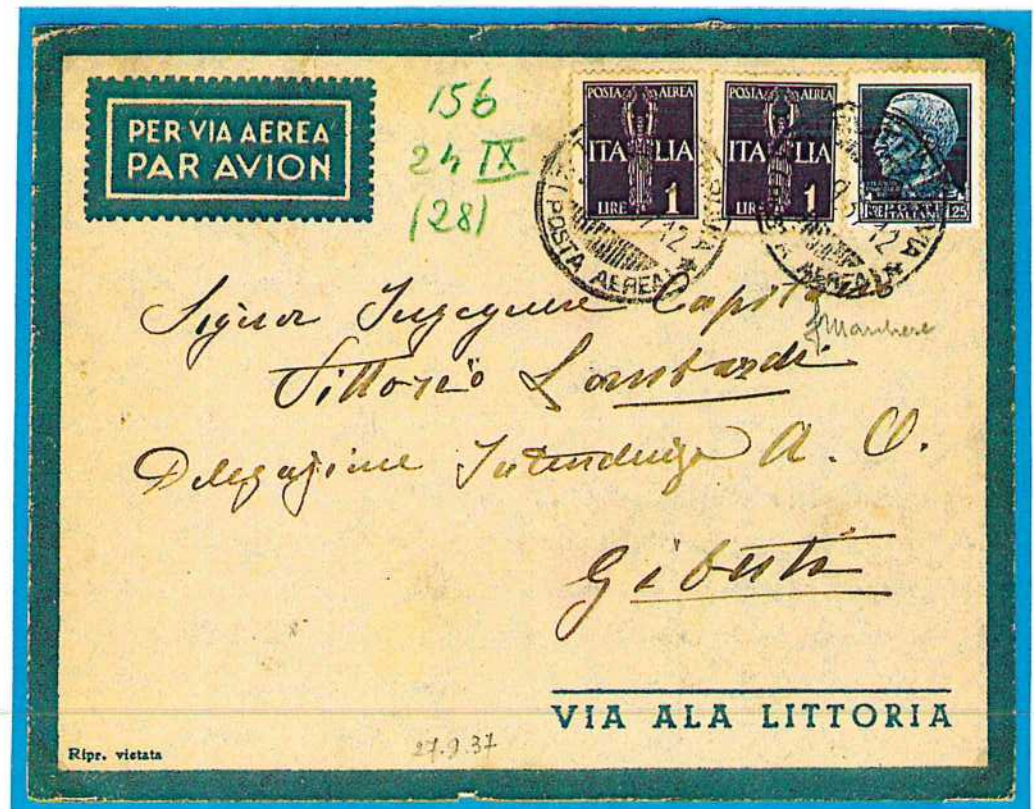 PER VIA AEREA
PAR AVION
156
24 IX
(28)
POSTA AEREA
ITALIA
LIRE 1
POSTA AEREA
ITALIA
LIRE 1
LIRE POSTE ITALIANE 1,25
(POSTA AEREA)
Signor Ingegnere Capitano
Vittorio Lombardi
Delegazione Intendenza A. O.
Gibuti
VIA ALA LITTORIA
Ripr. vietata
27.9.37